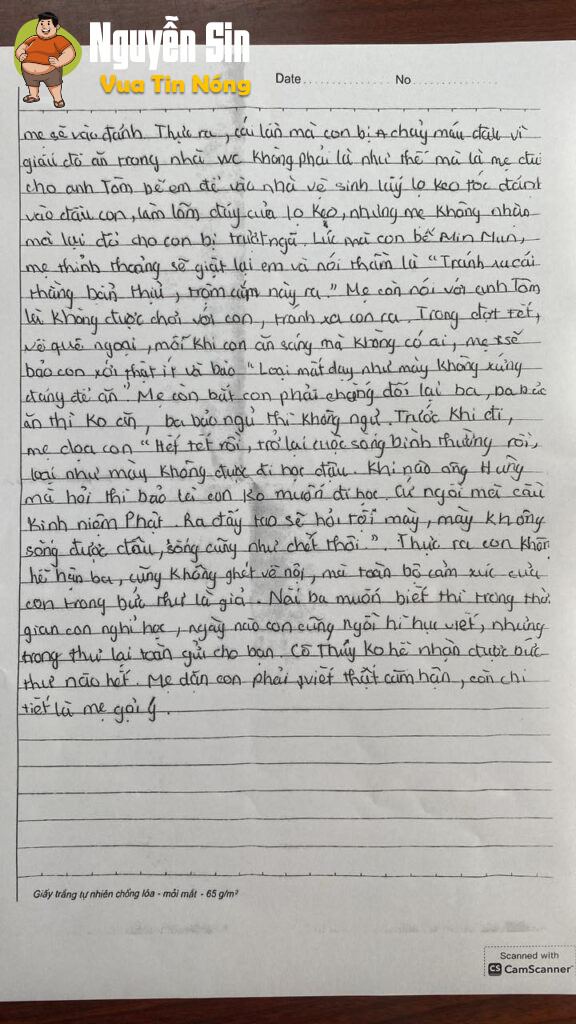 Nguyễn Sin
Vua Tin Nóng
Date No
mẹ sẽ vào đánh. Thực ra, cái lần mà con bị chảy máu đầu vì
giấu đồ ăn trong nhà wc không phải là như thế mà là mẹ đã
cho anh Tôm bế em để vào nhà vệ sinh lấy lọ keo tóc đánh
vào đầu con, làm lõm đáy của lọ keo, nhưng mẹ không nhận
mà lại đổ cho con bị trượt ngã. Lúc mà con bế Min Mun,
mẹ thỉnh thoảng sẽ giật lại em và nói thầm là "Tránh xa cái
thằng bẩn thỉu, trộm cắp này ra." Mẹ còn nói với anh Tôm
là không được chơi với con, tránh xa con ra. Trong đợt tết,
về quê ngoại, mỗi khi con ăn sáng mà không có ai, mẹ sẽ
bảo con xới thật ít và bảo "Loại mất dạy như mày không xứng
đáng để ăn". Mẹ còn bắt con phải chống đối lại ba, ba bảo
ăn thì ko ăn, ba bảo ngủ thì không ngủ. Trước khi đi,
mẹ dọa con "Hết tết rồi, trở lại cuộc sống bình thường rồi,
loại như mày không được đi học đâu. Khi nào ông Hưng
mà hỏi thì bảo là con ko muốn đi học. Cứ ngồi mà cầu
kinh niệm Phật. Ra đấy tao sẽ hỏi tội mày, mày không
sống được đâu, sống cũng như chết thôi.". Thực ra con không
hề hận ba, cũng không ghét vẽ nội, mà toàn bộ cảm xúc của
con trong bức thư là giả. Nếu ba muốn biết thì trong thời
gian con nghỉ học, ngày nào con cũng ngồi hì hục viết, nhưng
trong thư lại toàn gửi cho bạn. Cô Thủy ko hề nhận được bức
thư nào hết. Mẹ dặn con phải viết thật căm hận, còn chi
tiết là mẹ gợi ý.
Giấy trắng tự nhiên chống lóa - mỏi mắt - 65 g/m²
Scanned with
CS CamScanner